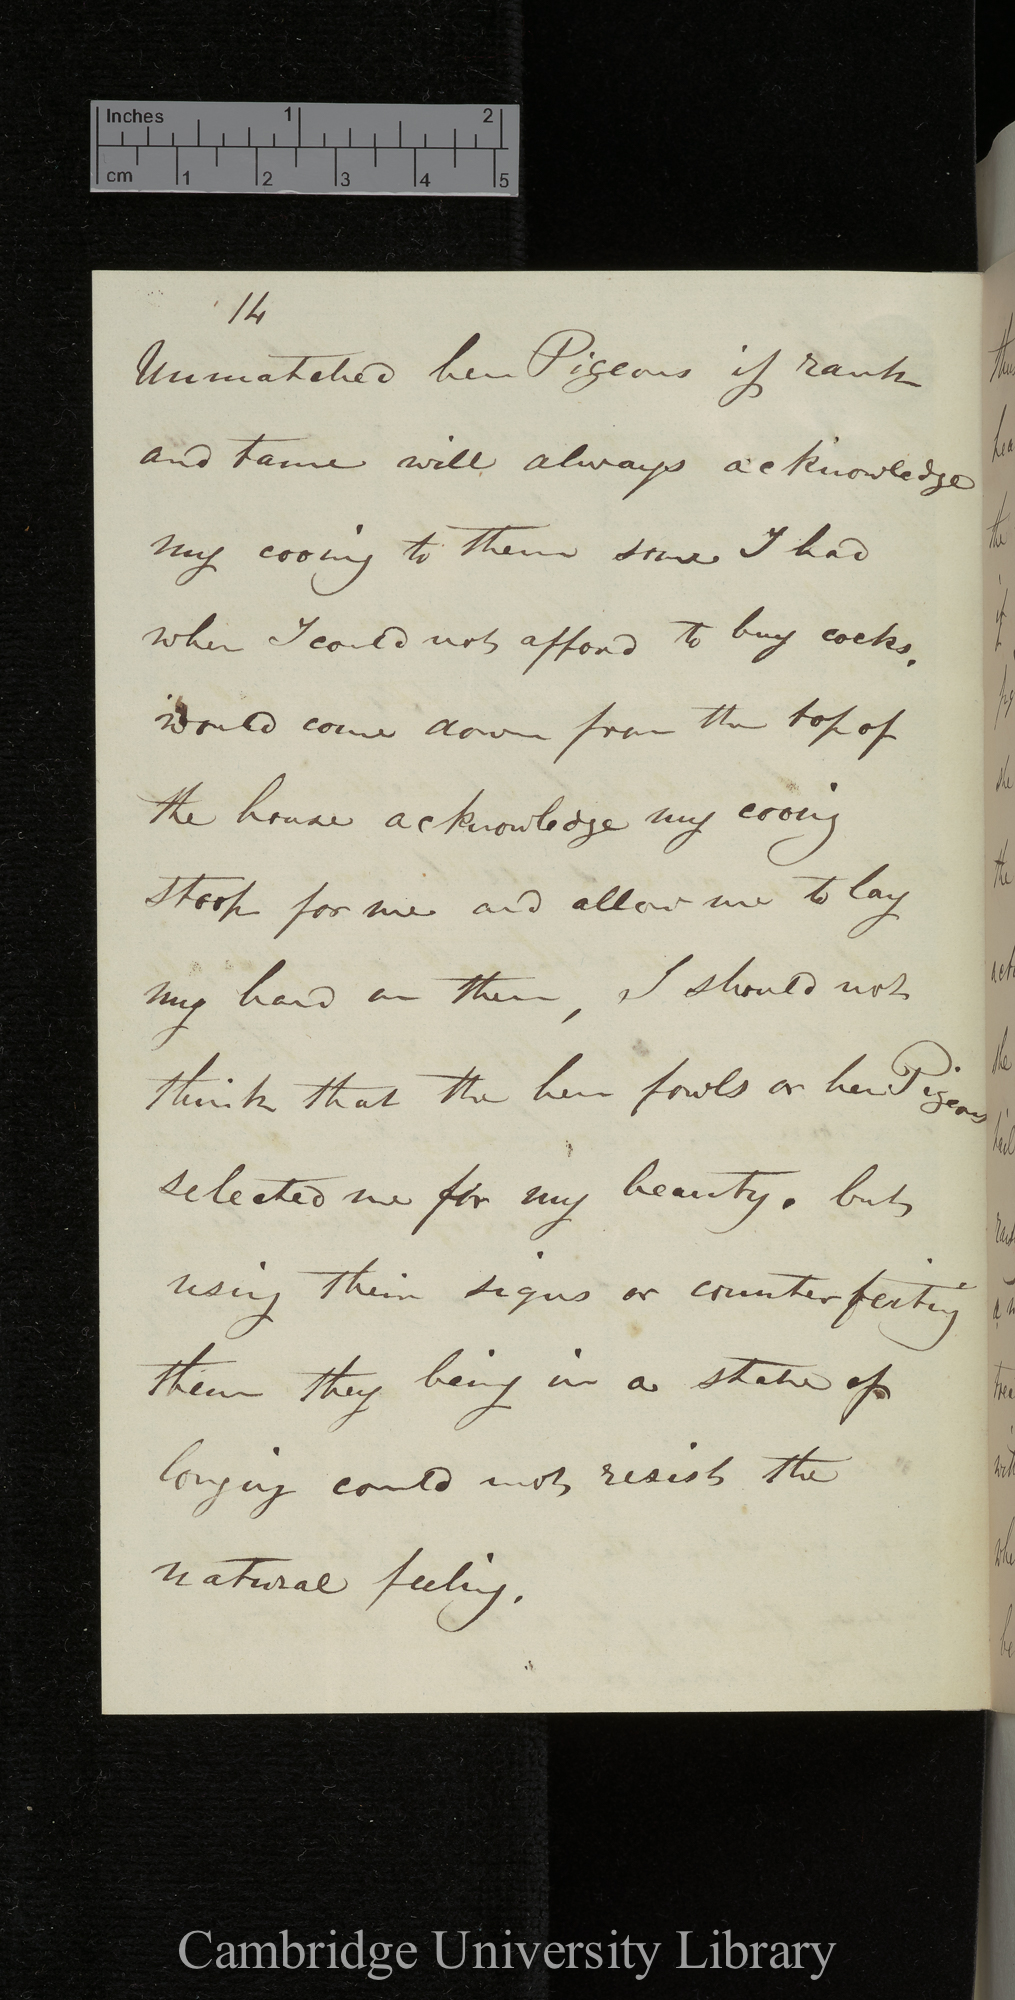 Inches 1 2
cm 1 2 3 4 5
14
Unmatched hen Pigeons if rank
and tame will always acknowledge
my cooing to them some I had
when I could not afford to buy cocks.
would come down from the top of
the house acknowledge my cooing
stoop for me and allow me to lay
my hand on them, I should not
think that the hen fowls or hen Pigeons
selected me for my beauty. but
using their signs or counterfeiting
them they being in a state of
longing could not resist the
natural feeling.
Cambridge University Library